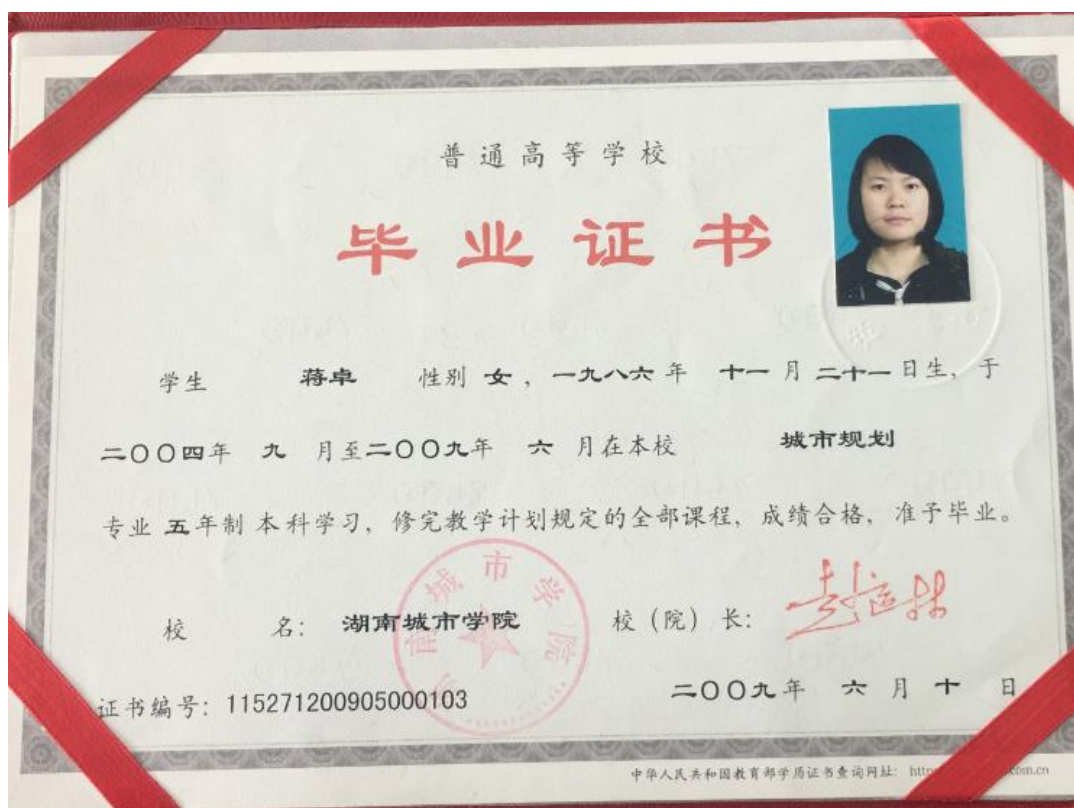 普通高等学校
毕业证书
学生 蒋卓 性别 女，一九八六年 十一月二十一日生，于
二〇〇四年 九 月至二〇〇九年 六 月在本校 城市规划
专业 五年制 本科学习，修完教学计划规定的全部课程，成绩合格，准予毕业。
校 名：湖南城市学院 校（院）长：
南城市学院
证书编号：115271200905000103
二〇〇九年 六 月 十 日
中华人民共和国教育部学历证书查询网址：http
com.cn